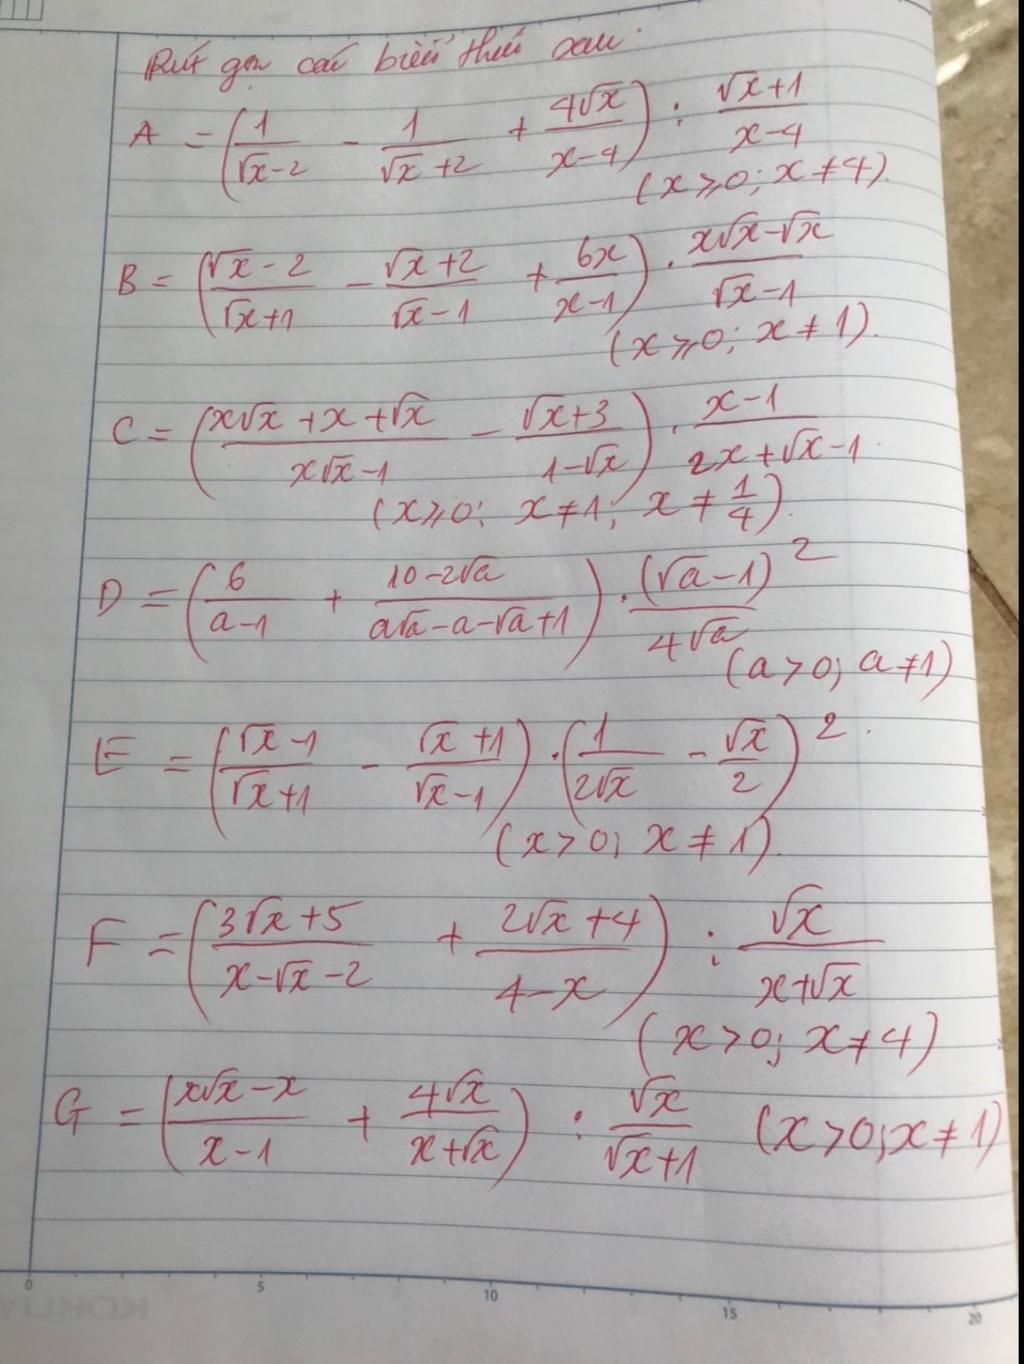 Rút gọn các biểu thức sau:
A = (1/(√x-2) - 1/(√x+2) + 4√x/(x-4)) : (√x+1)/(x-4)
(x ⩾ 0; x ≠ 4).
B = ((√x-2)/(√x+1) - (√x+2)/(√x-1) + 6x/(x-1)) . (x√x-√x)/(√x-1)
(x ⩾ 0; x ≠ 1).
C = ((x√x+x+√x)/(x√x-1) - (√x+3)/(1-√x)) . (x-1)/(2x+√x-1).
(x ⩾ 0; x ≠ 1; x ≠ 1/4).
D = (6/(a-1) + (10-2√a)/(a√a-a-√a+1)) . (√a-1)²/(4√a)
(a > 0; a ≠ 1)
E = ((√x-1)/(√x+1) - (√x+1)/(√x-1)) . (1/(2√x) - √x/2)².
(x > 0; x ≠ 1).
F = ((3√x+5)/(x-√x-2) + (2√x+4)/(4-x)) : √x/(x+√x)
(x > 0; x ≠ 4)
G = ((x√x-x)/(x-1) + 4√x/(x+√x)) : √x/(√x+1) (x > 0; x ≠ 1)
0 5 10 15 20